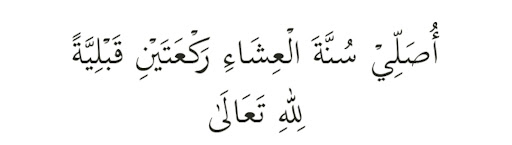 أُصَلِّيْ سُنَّةَ الْعِشَاءِ رَكْعَتَيْنِ قَبْلِيَّةً
لِلّٰهِ تَعَالَىٰ